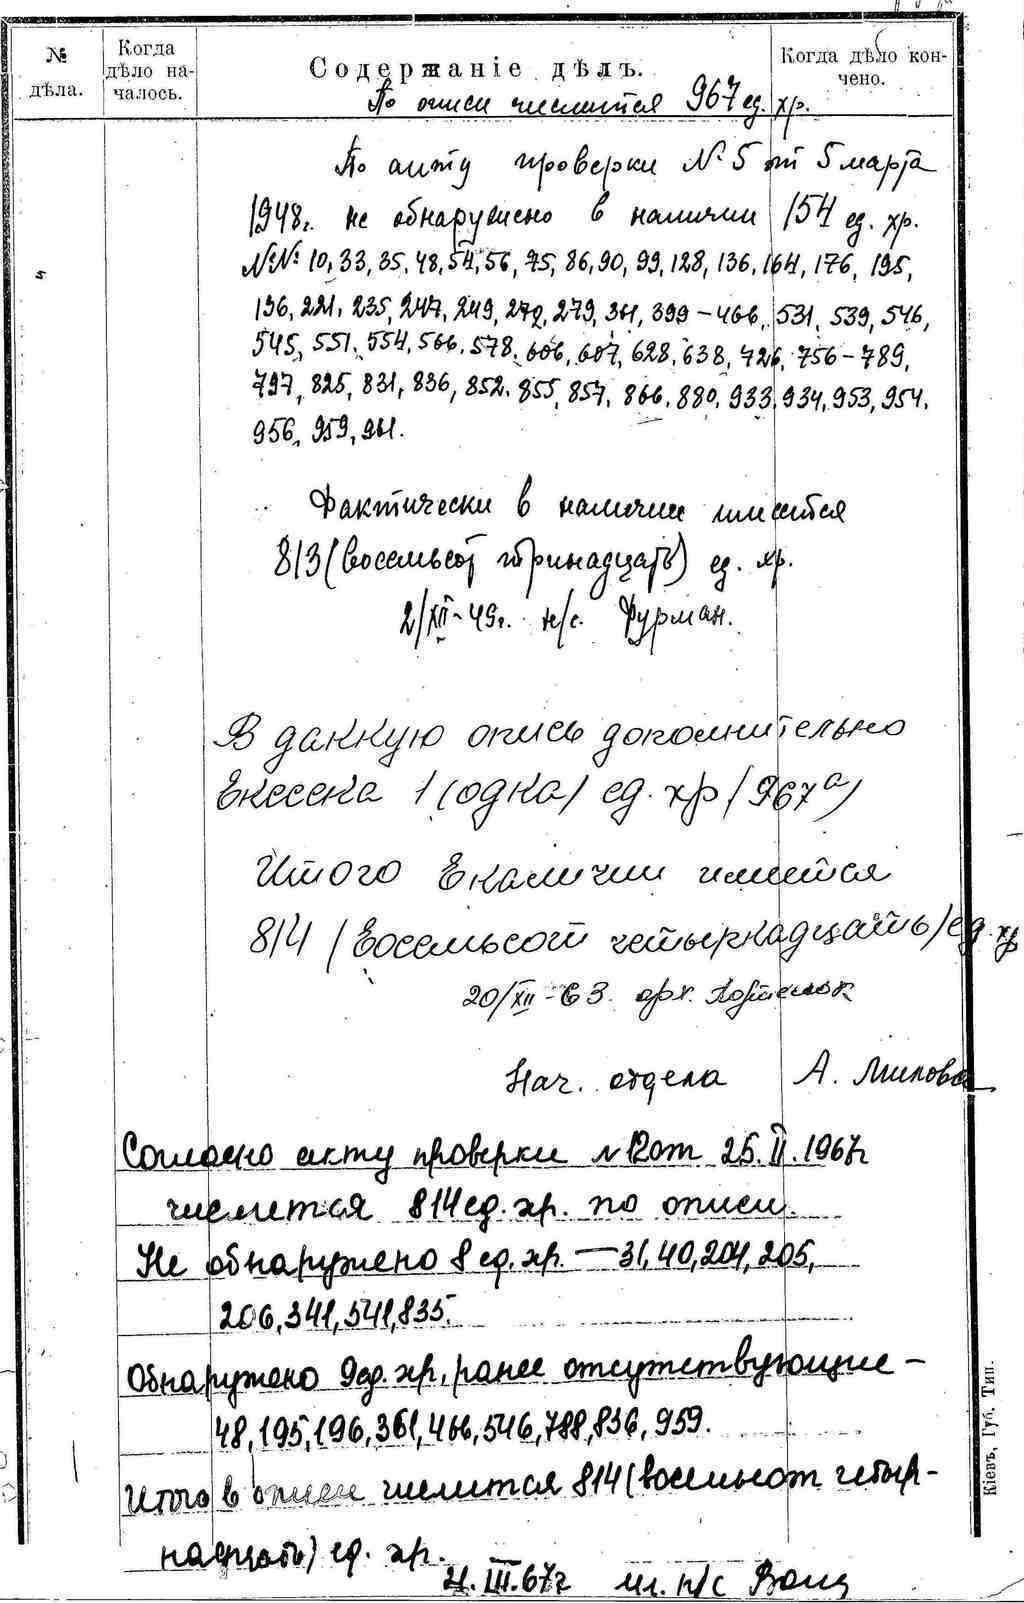 № дѣла.
Когда дѣло началось.
Содержаніе дѣлъ.
Когда дѣло кончено.
По описи числится 967 ед. хр.
По акту проверки № 5 от 5 марта
1948г. не обнаружено в наличии 154 ед. хр.
№№ 10, 33, 35, 48, 54, 56, 75, 86, 90, 99, 128, 136, 164, 176, 195,
196, 221, 235, 247, 249, 272, 279, 361, 399-466, 531, 539, 546,
545, 551, 554, 566, 578, 606, 607, 628, 638, 726, 756-789,
797, 825, 831, 836, 852, 855, 857, 866, 880, 933, 934, 953, 954,
956, 959, 961.
Фактически в наличии имеется
813 (восемьсот тринадцать) ед. хр.
2/XII-49г. н/с. Фурман.
В данную опись дополнительно
внесена 1 (одна) ед. хр (967а)
Итого в наличии имеется
814 (восемьсот четырнадцать) ед. хр
20/XII-63. арх.
Нач. отдела А.
Согласно акту проверки № 12 от 25.II.1967г
числится 814 ед. хр. по описи.
Не обнаружено 8 ед. хр. — 31, 40, 204, 205,
206, 341, 541, 835.
Обнаружено 9 ед. хр, ранее отсутствующие -
48, 195, 196, 361, 466, 546, 788, 836, 959.
Итого в описи числится 814 (восемьсот четыр-
надцать) ед. хр.
4.III.67г мл. н/с
Кіевъ, Губ. Тип.